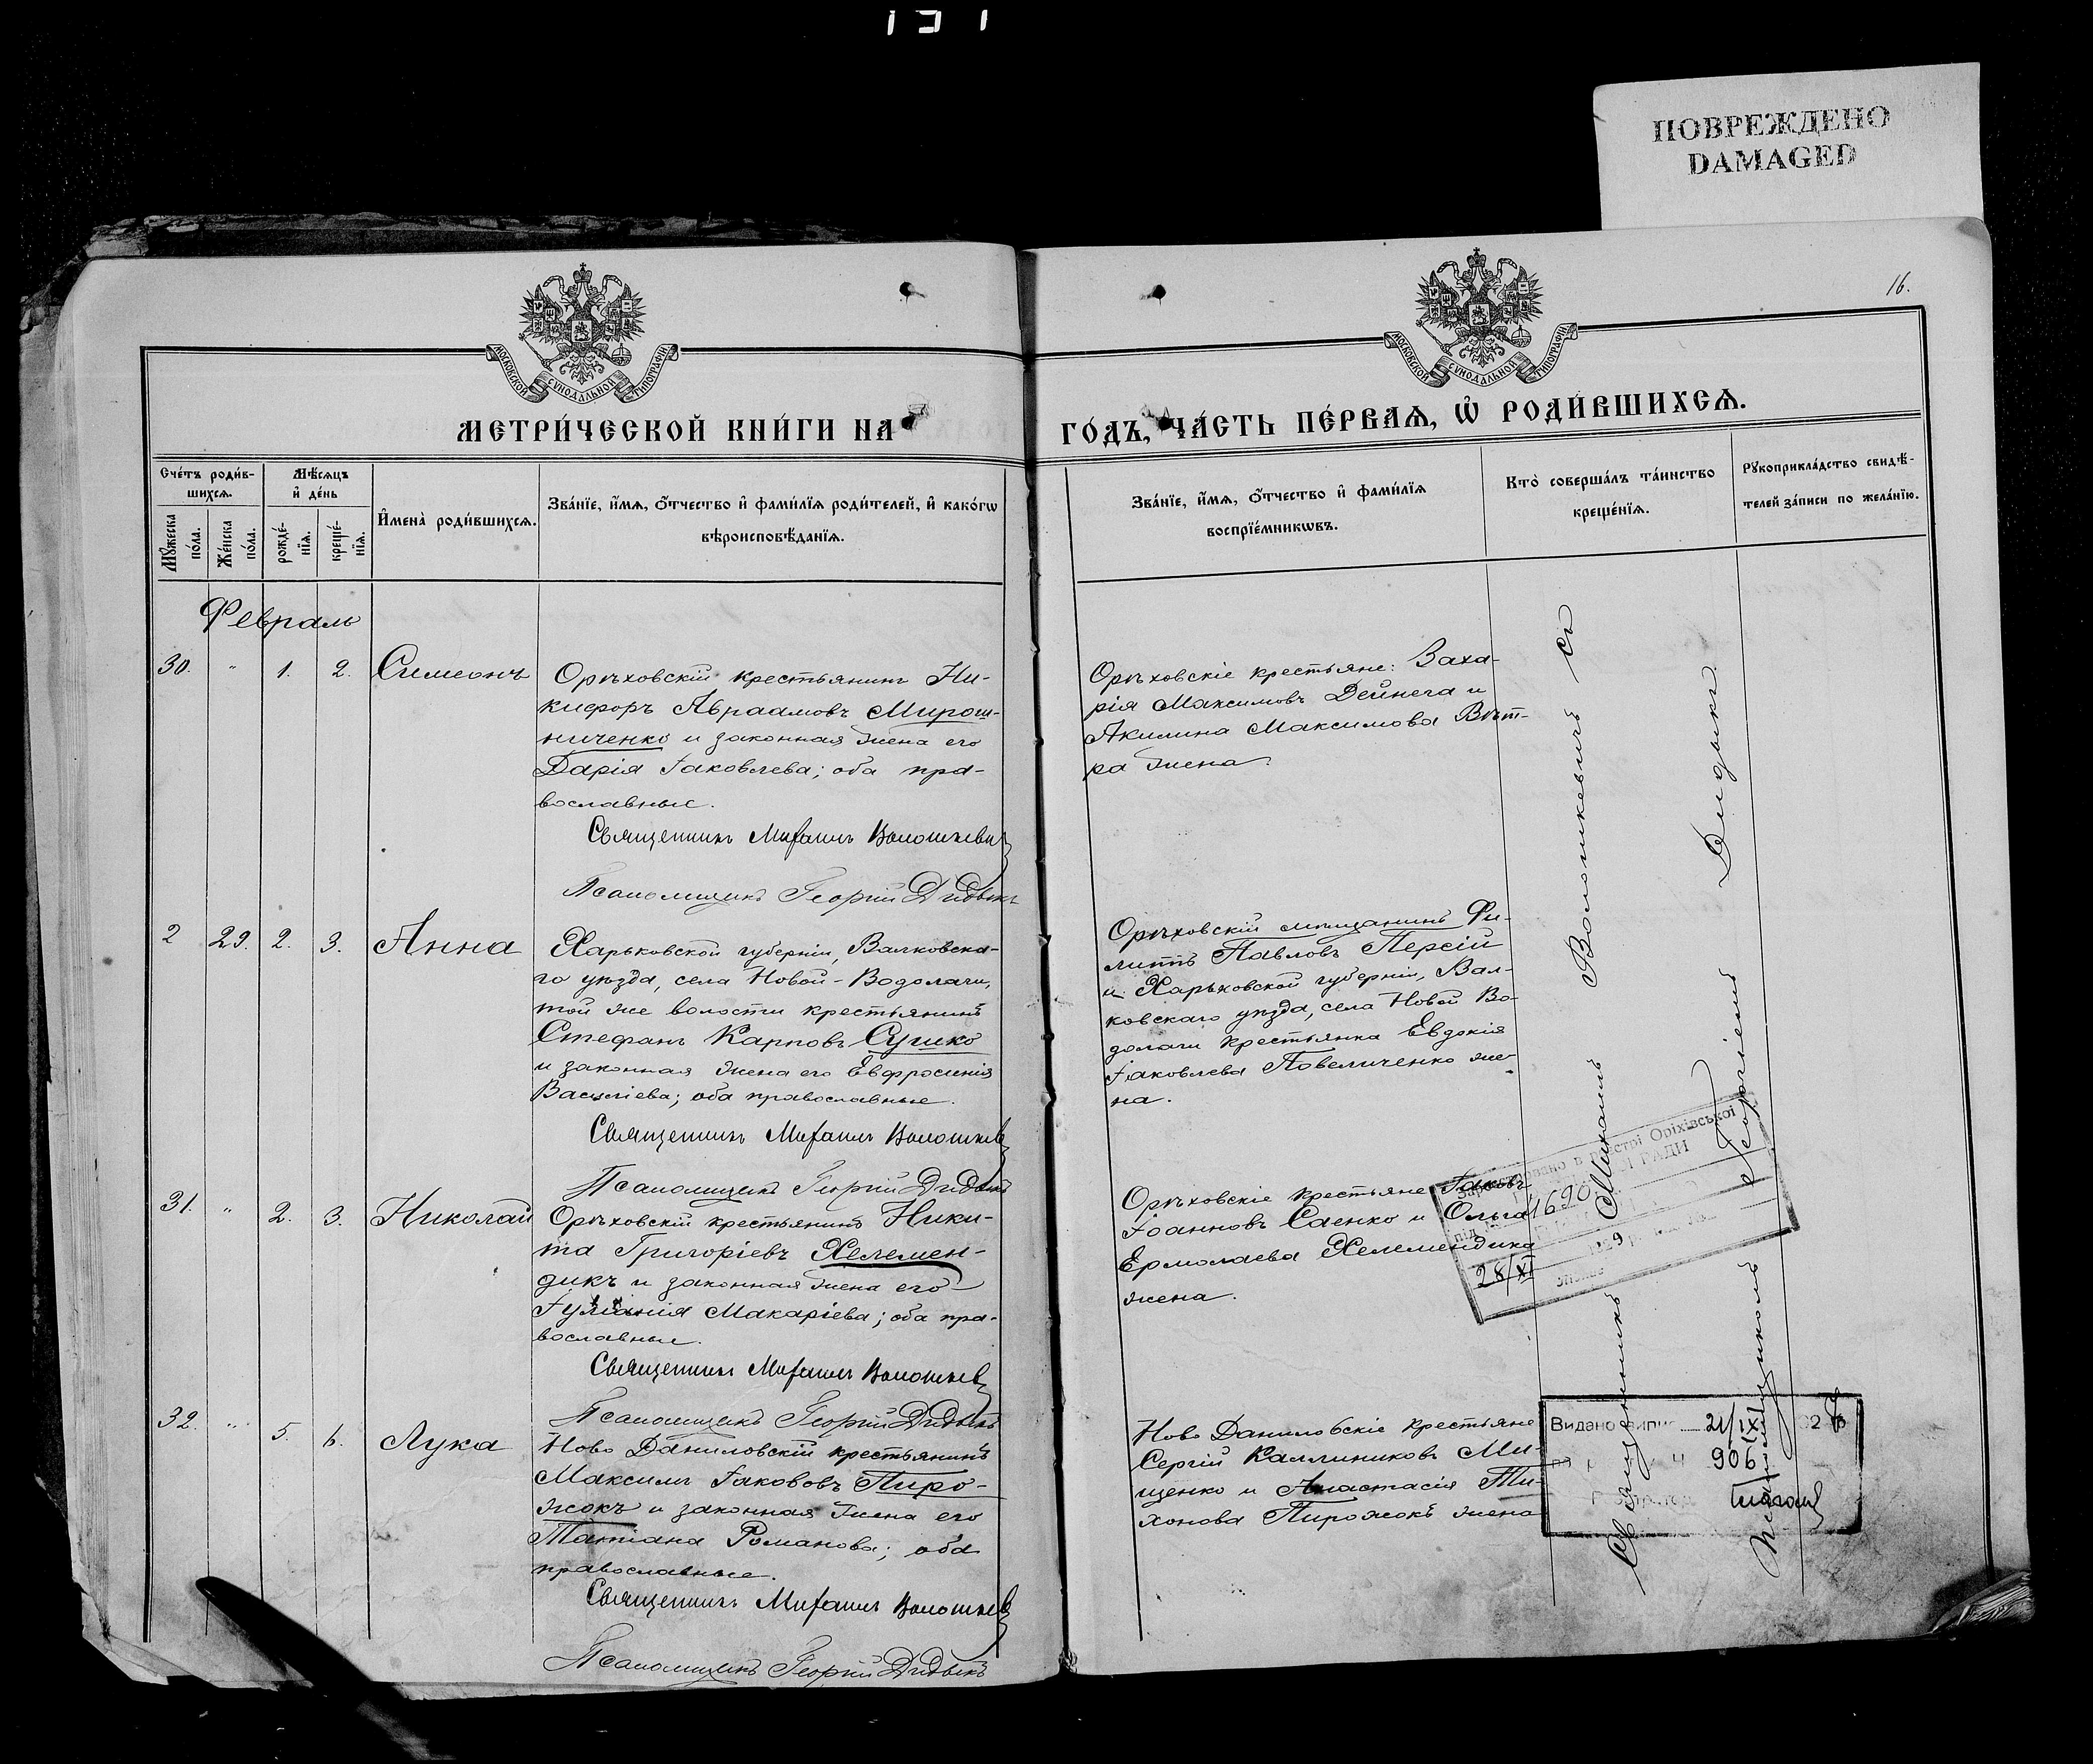 131
ПОВРЕЖДЕНО
DAMAGED
16.
МОСКОВСКОЙ СѴНОДАЛЬНОЙ ТИПОГРАФІИ
МОСКОВСКОЙ СѴНОДАЛЬНОЙ ТИПОГРАФІИ
МЕТРИ́ЧЕСКОЙ КНИ́ГИ НА
ГО́ДЪ, ЧА́СТЬ ПЕ́РВАѦ, Ѡ҆ РОДИ́ВШИХСѦ.
Сче́тъ роди́в-
шихсѧ.
Мꙋ́жеска
по́ла.
Же́нска
по́ла.
Мѣ́сѧцъ
и҆ де́нь
рожде́-
нїѧ.
креще́-
нїѧ.
И҆мена̀ роди́вшихсѧ.
Зва́нїе, и҆́мѧ, ѻ҆́тчество и҆ фами́лїѧ роди́телей, и҆ како́гѡ
вѣроисповѣ́данїѧ.
Зва́нїе, и҆́мѧ, ѻ҆́тчество и҆ фами́лїѧ
воспрїе́мникѡвъ.
Кто̀ соверша́лъ та́инство
креще́нїѧ.
Рꙋкоприкла́дство свидѣ́-
телей за́писи по жела́нїю.
Февраль
30. " 1. 2. Симеонъ
Орѣховскій крестьянинъ Ни-
кифоръ Авраамовъ Мирош-
ниченко и законная жена его
Дарія Іаковлева; оба пра-
вославные.
Священникъ Михаилъ Волошкевич
Псаломщикъ Георгій Дидыкъ
Орѣховскіе крестьяне: Заха-
рія Максимовъ Дейнега и
Акилина Максимова Вѣт-
ра жена.
2 29. 2. 3. Анна
Харьковской губерніи, Валковска-
го уѣзда, села Новой-Водолаги,
той же волости крестьянинъ
Стефанъ Карповъ Сушко
и законная жена его Евфросинія
Василіева; оба православные.
Священникъ Михаилъ Волошкев
Псаломщикъ Георгій Дидыкъ
Орѣховскій мѣщанинъ Фи-
липпъ Павловъ Персій
и Харьковской губерніи, Вал-
ковскаго уѣзда, села Новой Во-
долаги крестьянка Евдокія
Іаковлева Павеличенко же-
на.
31. " 2. 3. Николай
Орѣховскій крестьянинъ Ники-
та Григоріевъ Хелемен-
дикъ и законная жена его
Іуліанія Макаріева; оба пра-
вославные.
Священникъ Михаилъ Волошкев
Псаломщикъ Георгій Дидыкъ
Орѣховскіе крестьяне Іаковъ
Іоанновъ Саенко и Ольга
Ермолаева Хелемендика
жена.
32. " 5. 6. Лука
Ново Даниловскій крестьянинъ
Максимъ Іаковъ Пиро-
жокъ и законная жена его
Татіана Романова; оба
православные.
Священникъ Михаилъ Волошкев
Псаломщикъ Георгій Дидыкъ
Ново Даниловскіе крестьяне
Сергій Каллиниковъ Ми-
щенко и Анастасія Ти-
хонова Пирожокъ жена
Священникъ Михаилъ Волошкевичъ съ
Псаломщикомъ Георгіемъ Дидыкъ
в реєстрі Оріхівської
РАДИ
1690
28/XI
Видано випис 21/IX
906